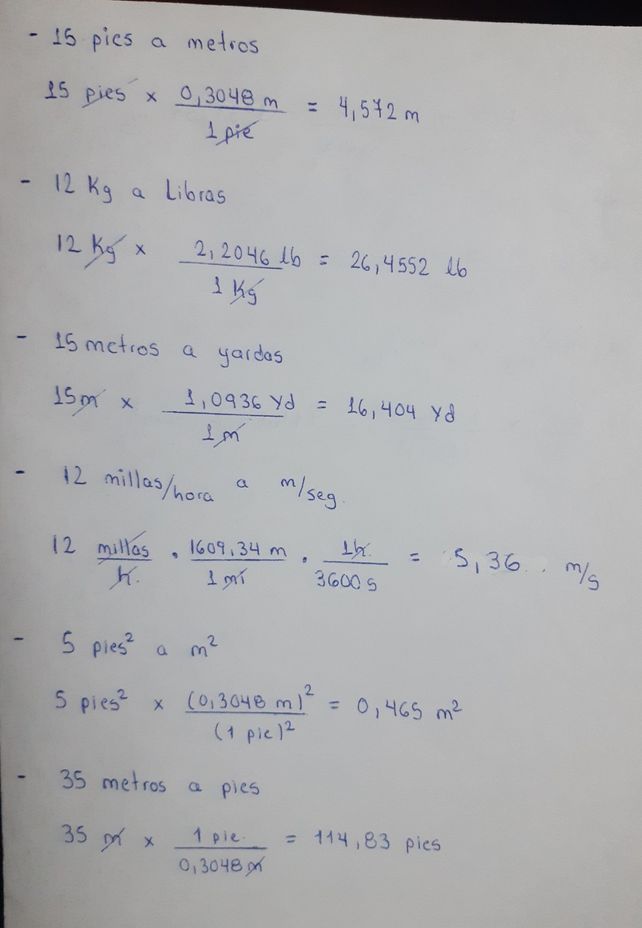 - 15 pies a metros
15 pies x 0,3048 m / 1 pie = 4,572 m
- 12 Kg a Libras
12 Kg x 2,2046 lb / 1 Kg = 26,4552 lb
- 15 metros a yardas
15 m x 1,0936 Yd / 1 m = 16,404 Yd
- 12 millas/hora a m/seg.
12 millas / h. . 1609,34 m / 1 mi . 1h. / 3600 s = 5,36 .. m/s
- 5 pies² a m²
5 pies² x (0,3048 m)² / (1 pie)² = 0,465 m²
- 35 metros a pies
35 m x 1 pie / 0,3048 m = 114,83 pies